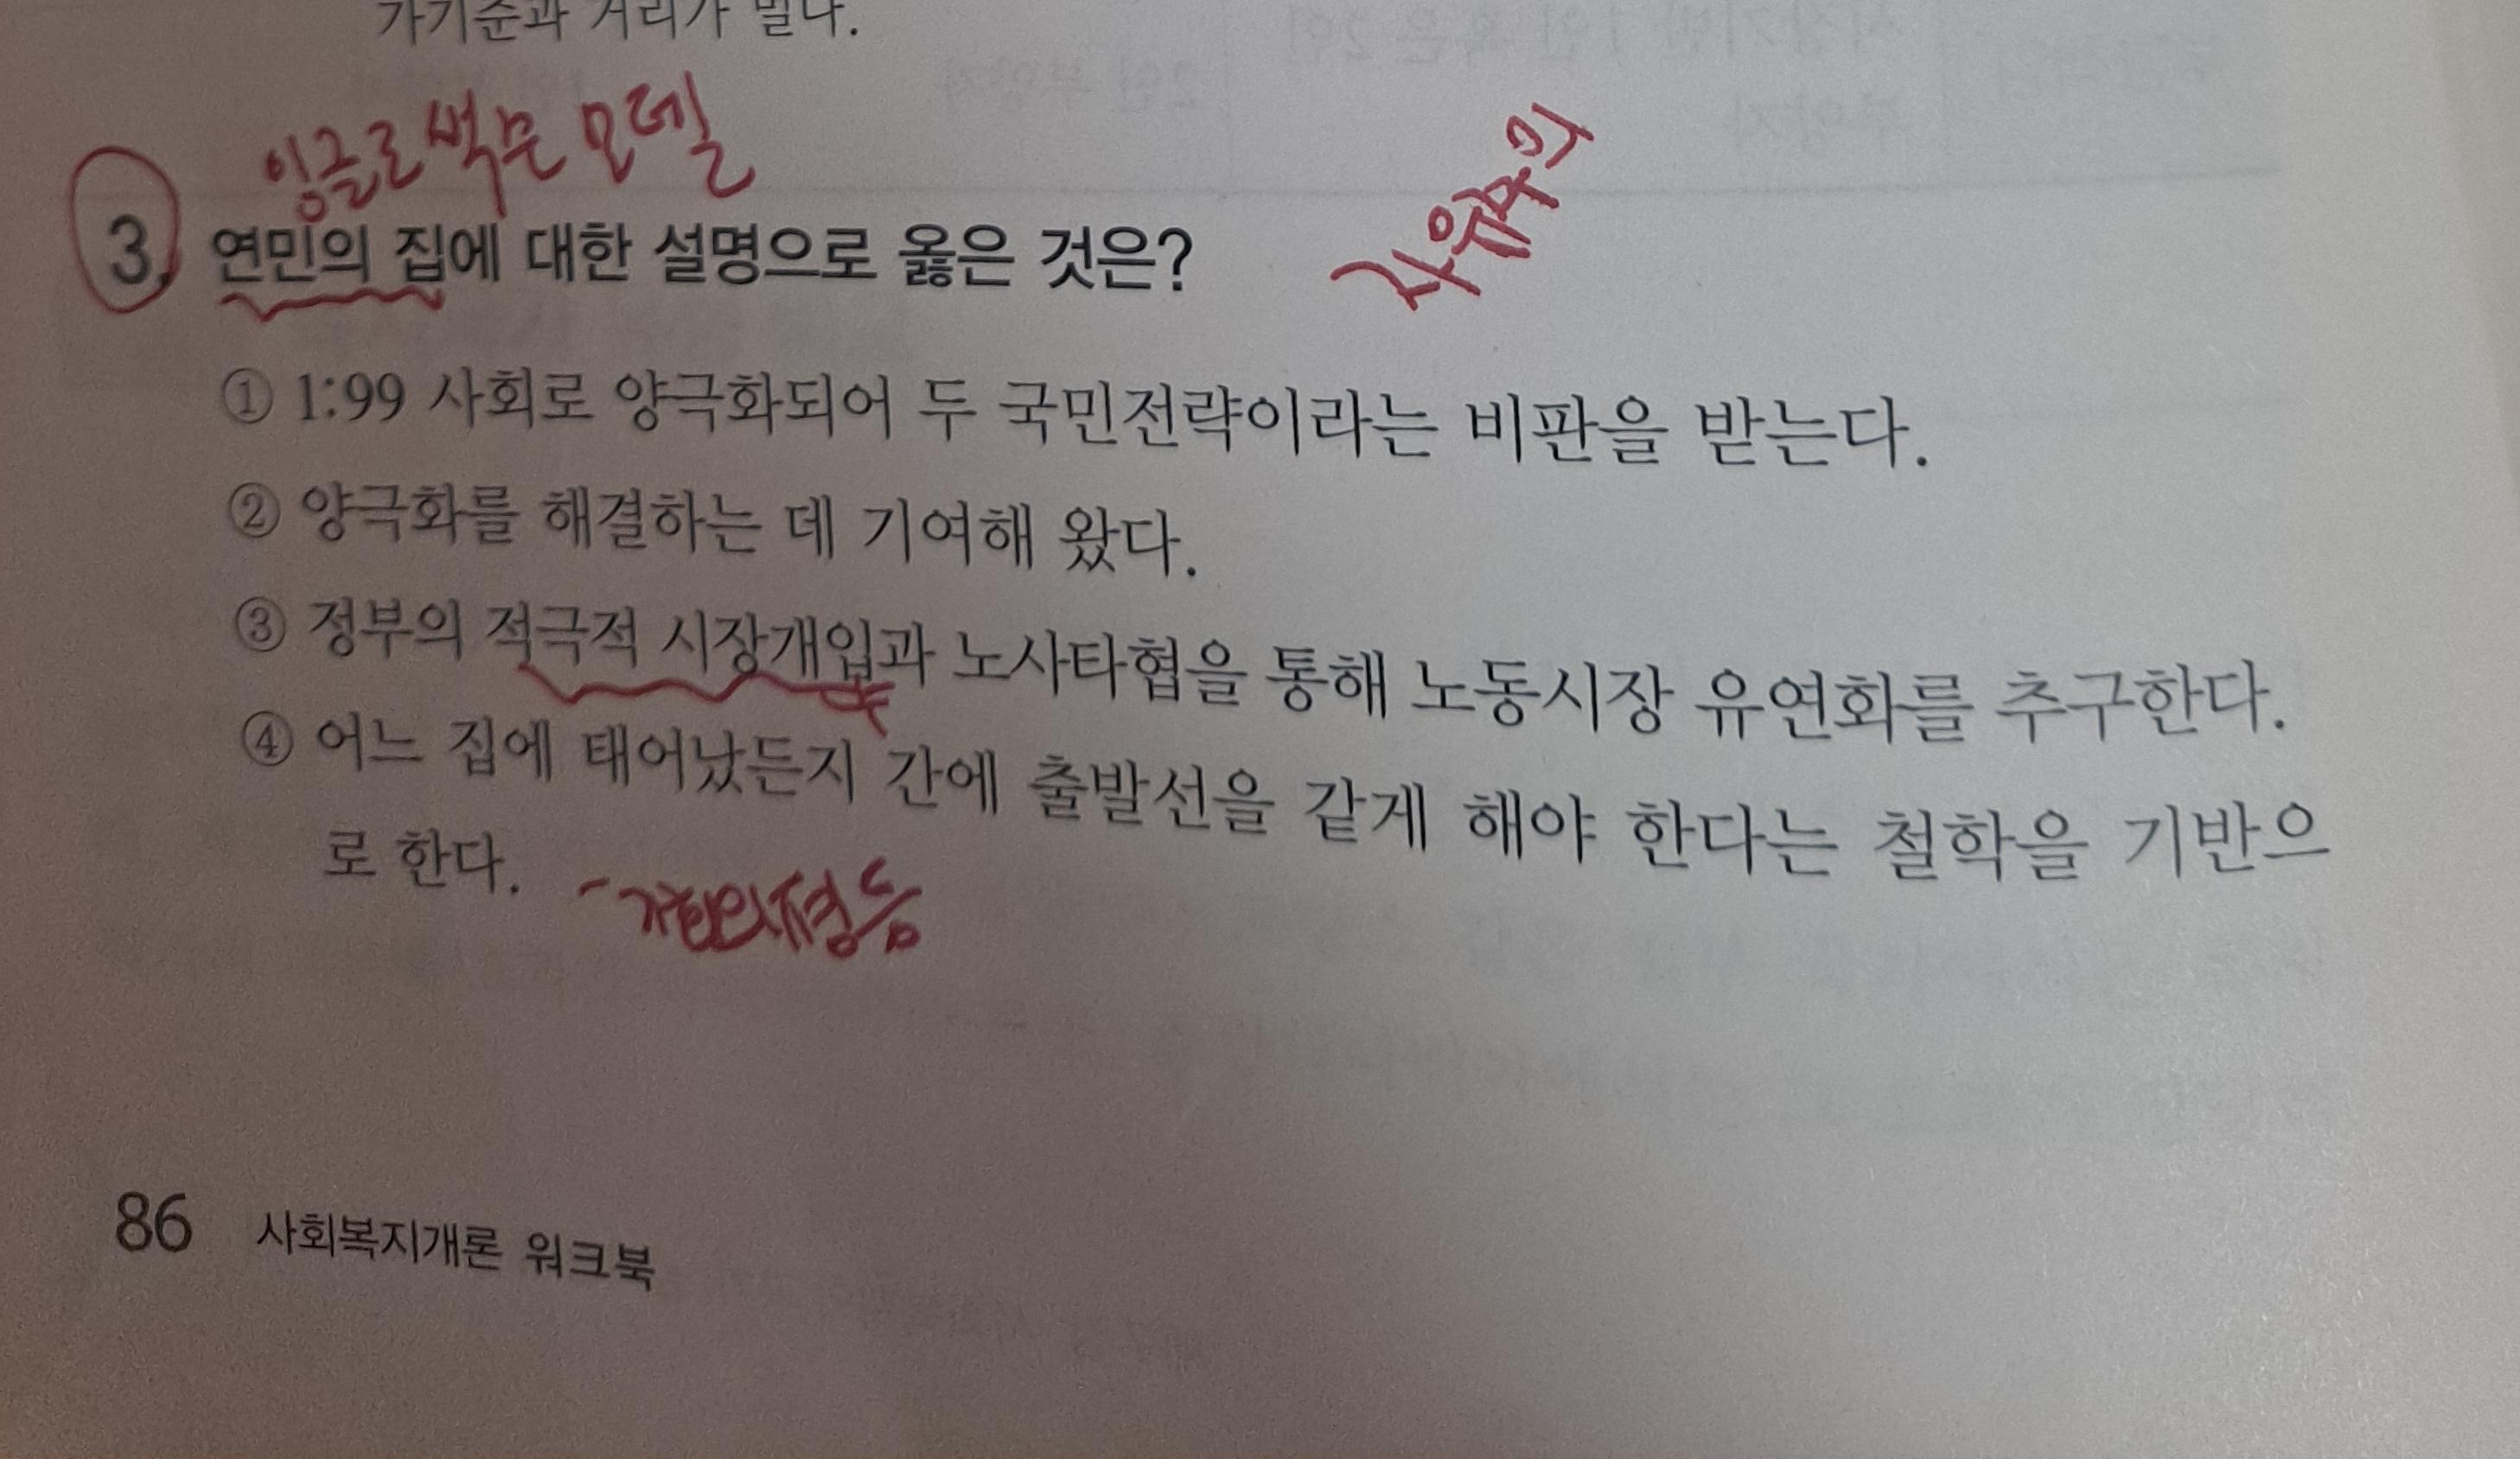 가기준과 거리가 멀다.
잉글로색슨 모델
자유주의
3. 연민의 집에 대한 설명으로 옳은 것은?
① 1:99 사회로 양극화되어 두 국민전략이라는 비판을 받는다.
② 양극화를 해결하는 데 기여해 왔다.
③ 정부의 적극적 시장개입과 노사타협을 통해 노동시장 유연화를 추구한다.
④ 어느 집에 태어났든지 간에 출발선을 같게 해야 한다는 철학을 기반으
로 한다.
86 사회복지개론 워크북